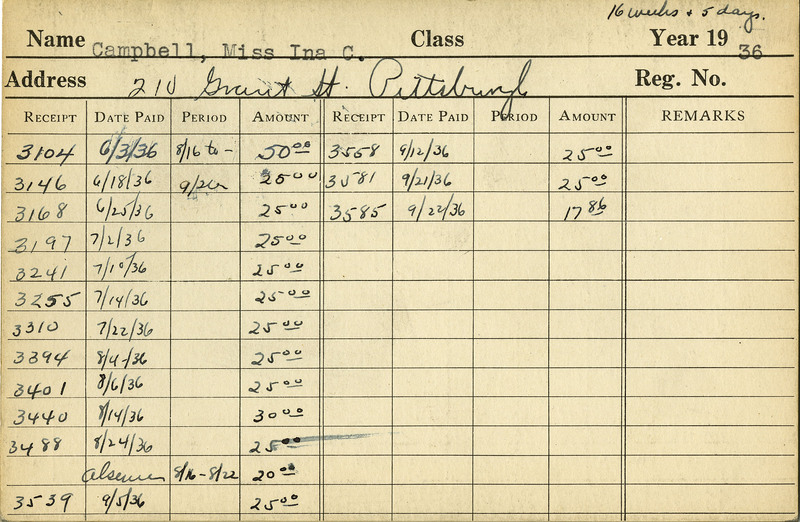 16 weeks + 5 days.
Name Campbell, Miss Ina C. Class Year 19 36
Address 210 Grant St. Pittsburgh Reg. No.
RECEIPT DATE PAID PERIOD AMOUNT RECEIPT DATE PAID PERIOD AMOUNT REMARKS
3104 6/3/36 8/16 to - 50 00 3558 9/12/36 25 00
3146 6/18/36 25 00 3581 9/21/36 25 00
3168 6/25/36 25 00 3585 9/22/36 17 86
3197 7/2/36 25 00
3241 7/10/36 25 00
3255 7/14/36 25 00
3310 7/22/36 25 00
3394 8/4/36 25 00
3401 8/6/36 25 00
3440 8/14/36 30 00
3488 8/24/36 25 00
8/16-8/22 20 00
3539 9/5/36 25 00